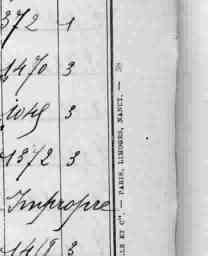 372 1
1470 3
3
1372 3
Impropre
3
LLE ET Cⁱᵉ. — PARIS, LIMOGES, NANCY. —